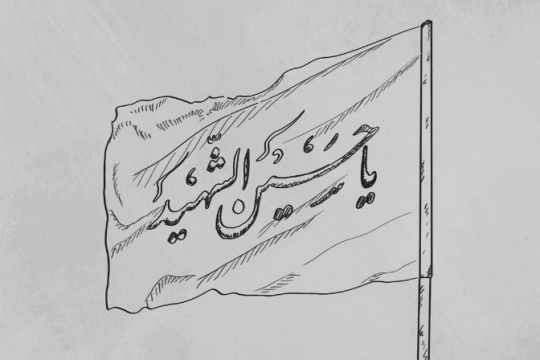 یا حسین الشهید